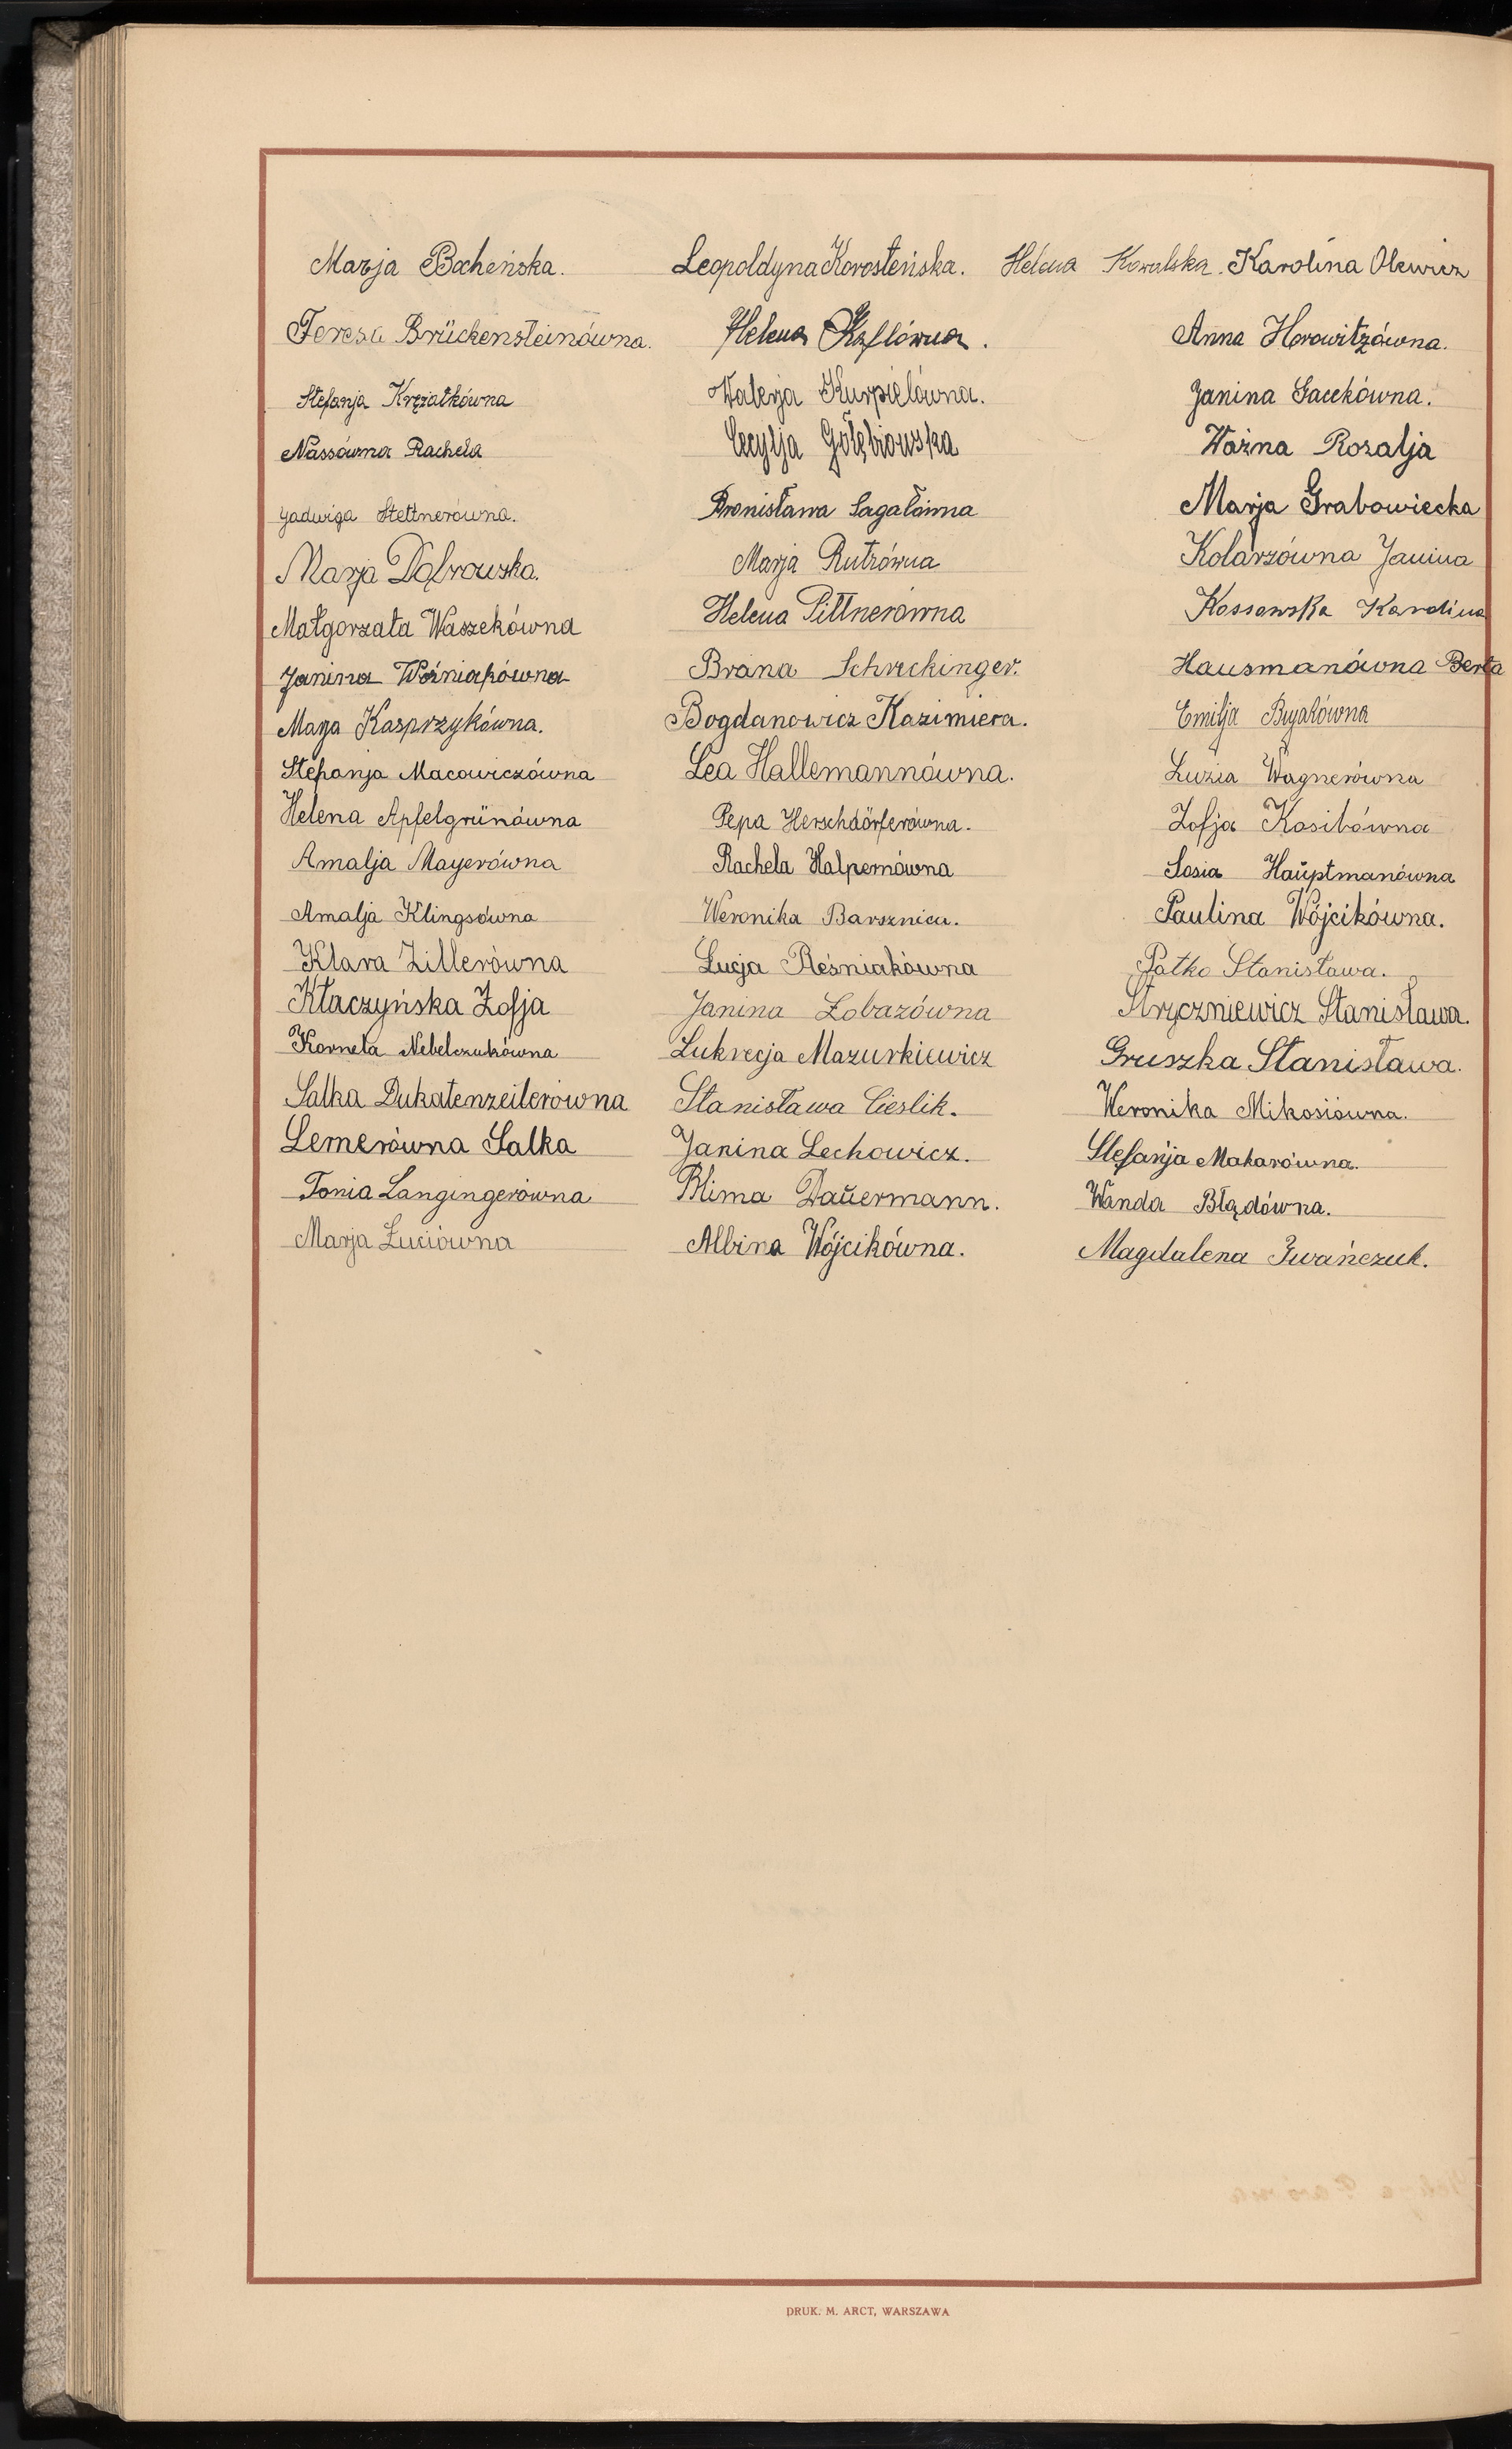 Marja Bocheńska. Leopoldyna Korosteńska. Helena Kowalska. Karolina Olewicz
Teresa Brückensteinówna. Helena Kaflówna. Anna Horowitzówna.
Stefanja Krężałkówna Walerja Kurpielówna. Janina Gacekówna.
Nassówna Rachela Cecylja Gołębiowska Ważna Rozalja
Jadwiga Stettnerówna. Bronisława Sagałówna Marja Grabowiecka
Marja Dąbrowska. Marja Rutzówna Kolarzówna Janina
Małgorzata Waszekówna Helena Pittnerówna Kossowska Karolina
Janina Woźniakówna Brana Schreckinger. Hausmanówna Berta
Marja Kasprzykówna. Bogdanowicz Kazimiera. Emilja Bryałówna
Stefanja Macowiczówna Lea Hallemannówna. Luzia Wagnerówna
Helena Apfelgrünówna Pepa Herschdörferówna. Zofja Kosibówna
Amalja Mayerówna Rachela Halpernówna Sosia Hauptmanówna
Amalja Klingsówna Weronika Barsznica. Paulina Wójcikówna.
Klara Zillerówna Łucja Reśniakówna Patko Stanisława.
Kłaczyńska Zofja Janina Łobazówna Stryczniewicz Stanisława.
Korneta Nebelczukówna Lukrecja Mazurkiewicz Gruszka Stanisława.
Salka Dukatenzeilerówna Stanisława Cieslik. Weronika Mikosiówna.
Lemerówna Salka Janina Lechowicz. Stefanja Makarówna.
Tonia Langingerówna Blima Dauermann. Wanda Błądówna.
Marja Łuciówna Albina Wójcikówna. Magdalena Iwańczuk.
DRUK. M. ARCT, WARSZAWA